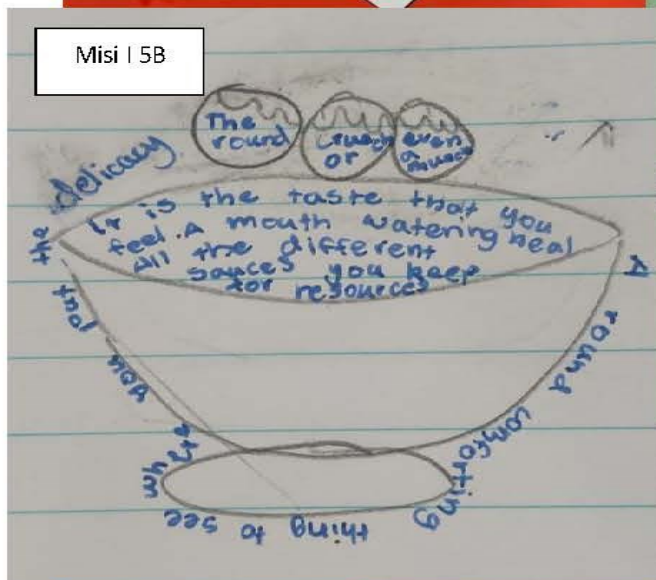 Misi I 5B
The
round
crunch
or
even
a munch
It is the taste that you
feel. A mouth watering
All the different
sauces you keep
for resources
A round comforting thing to see
you put the delicacy